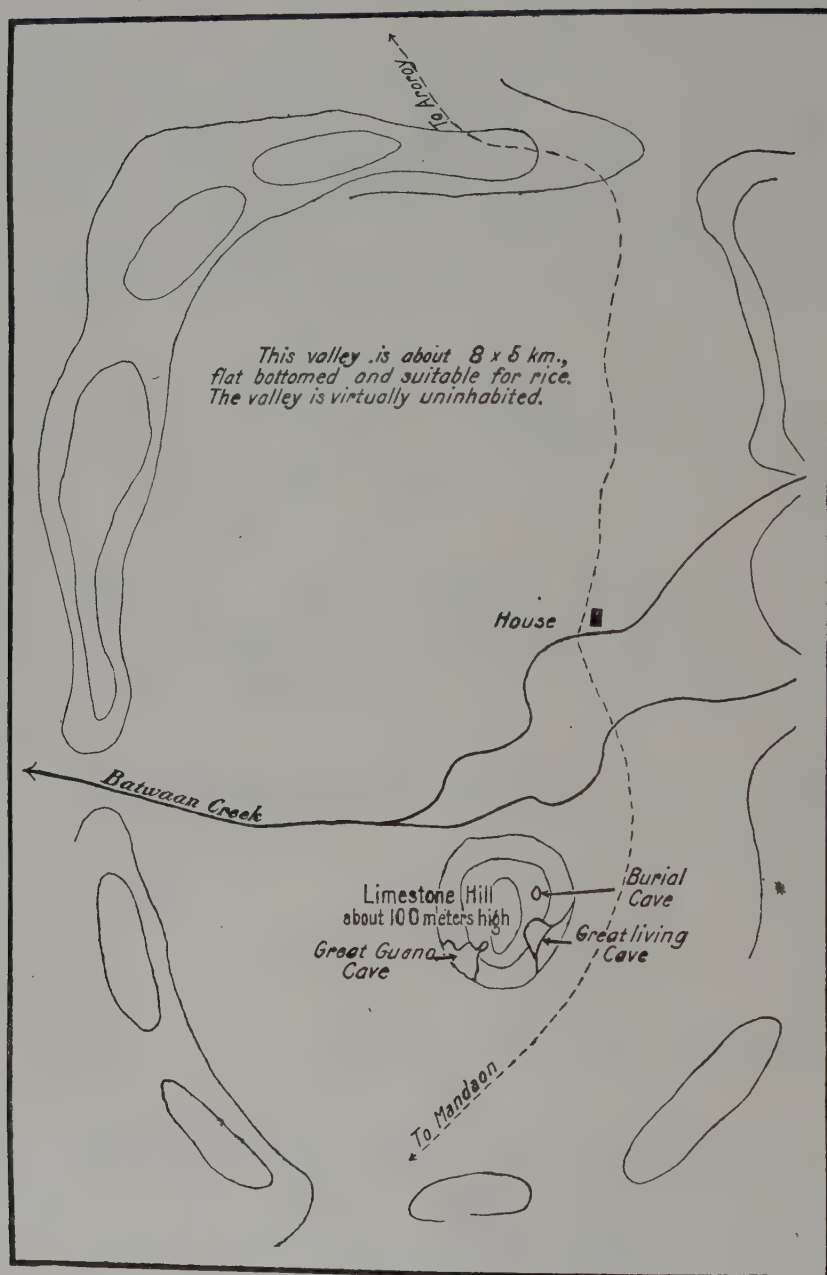 To Aroroy
This valley is about 8 x 5 km.,
flat bottomed and suitable for rice.
The valley is virtually uninhabited.
House
Batwaan Creek
Limestone Hill
about 100 meters high
Burial
Cave
Great living
Cave
Great Guano
Cave
To Mandaon